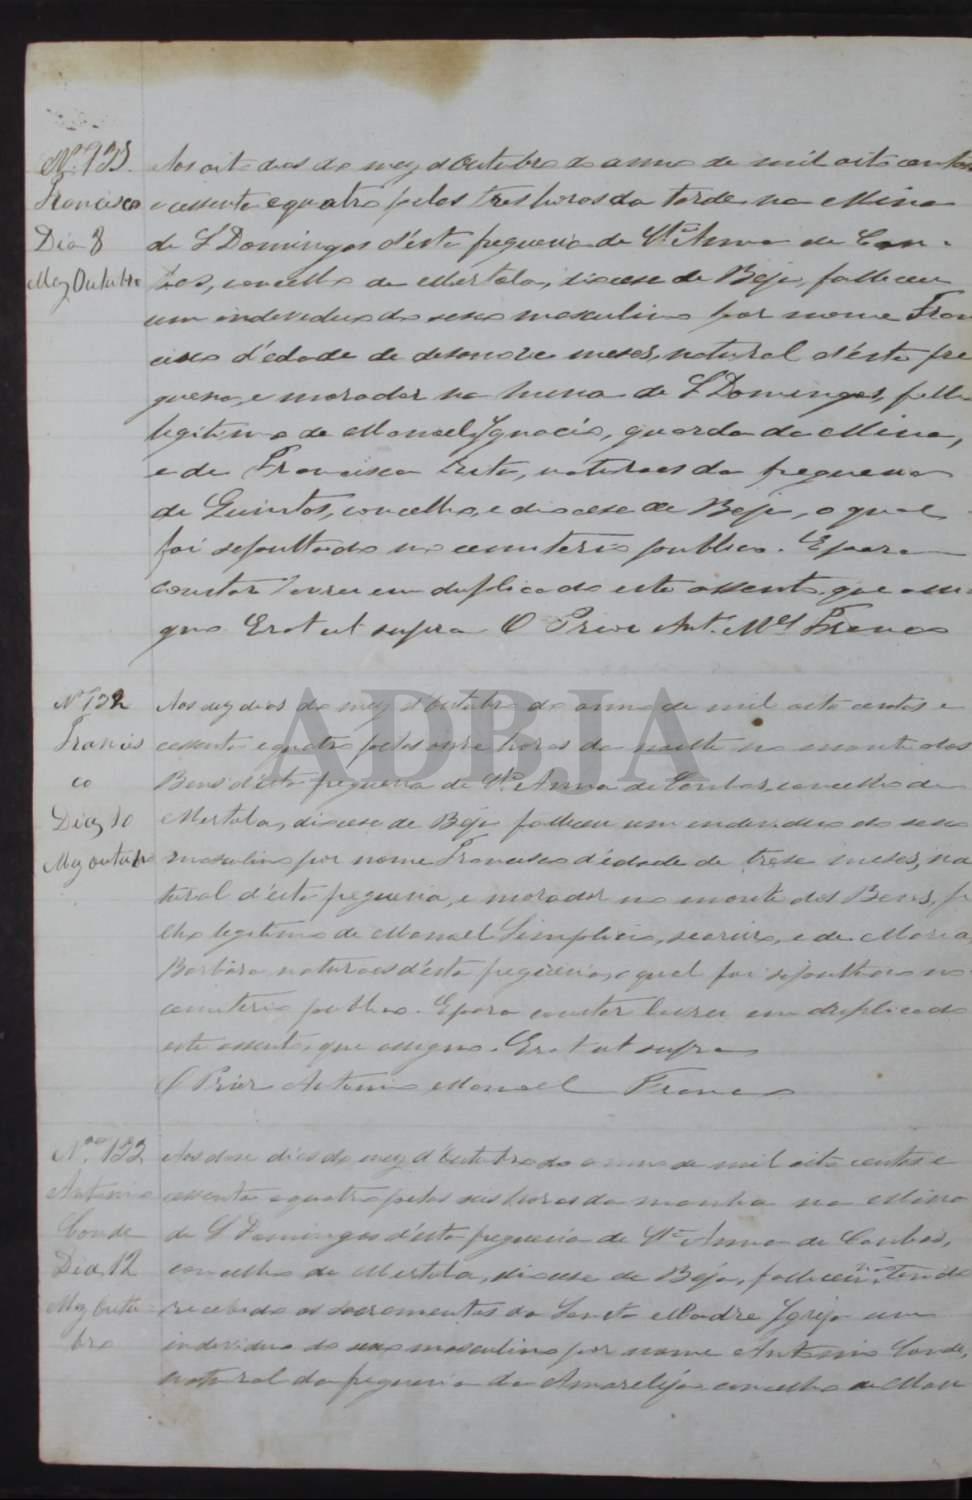 Nº 121
Francisco
Dia 8
Mez Outubro
Aos oito dias do mez d'Outubro do anno de mil oito centos
e cessenta e quatro pelas tres horas da tarde na Mina
de S Domingos d'ésta freguesia de Stª Anna de Cam-
bas, concelho de Mertola, diocese de Beja, falleceu
um individuo do sexo masculino por nome Fran
cisco d'édade de desonove meses, natural d'ésta fre
guesia, e morador na mina de S Domingos, filho
legitimo de Manoel Ignacio, guarda da Mina,
e de Francisca Rita, naturaes da freguesia
de Quintos, concelho, e diocese de Beja, o qual
foi sepultado no cemiterio publico. E para
constar lavrei em duplicado este assento, que assi
gno. Erat ut supra O Prior Ant. Mel Franco
Nº 122
Francis
co
Dia 10
Mez Outubro
Aos dez dias do mez d'Outubro do anno de mil oito centos e
cessenta e quatro pelas onze horas da noitte no monte dos
Bens d'ésta freguesia de Stª Anna de Cambas, concelho de
Mertola, diocese de Beja falleceu um individuo do sexo
masculino por nome Francisco d'édade de trese meses, na
tural d'ésta freguesia, e morador no monte dos Bens, fi
lho legitimo de Manoel Simplicio, seareiro, e de Maria
Barbára, naturaes d'ésta freguesia, o qual foi sepultado no
cemiterio publico. E para constar lavrei em duplicado
este assento, que assigno. Erat ut supra
O Prior Antonio Manoel Franco
Nº 122
Antonio
Conde
Dia 12
Mez Outu
bro
Aos dose dias do mez d'Outubro do anno de mil oito centos e
cessenta e quatro pelas seis horas da manha na Mina
de S Domingos d'ésta freguesia de Stª Anna de Cambas,
concelho de Mertola, diocese de Beja, falleceu tendo
recebido os sacramentos da Santa Madre Igreja um
individuo do sexo masculino por nome Antonio Conde,
natural da freguesia da Amareleja concelho de Mou
ADBJA